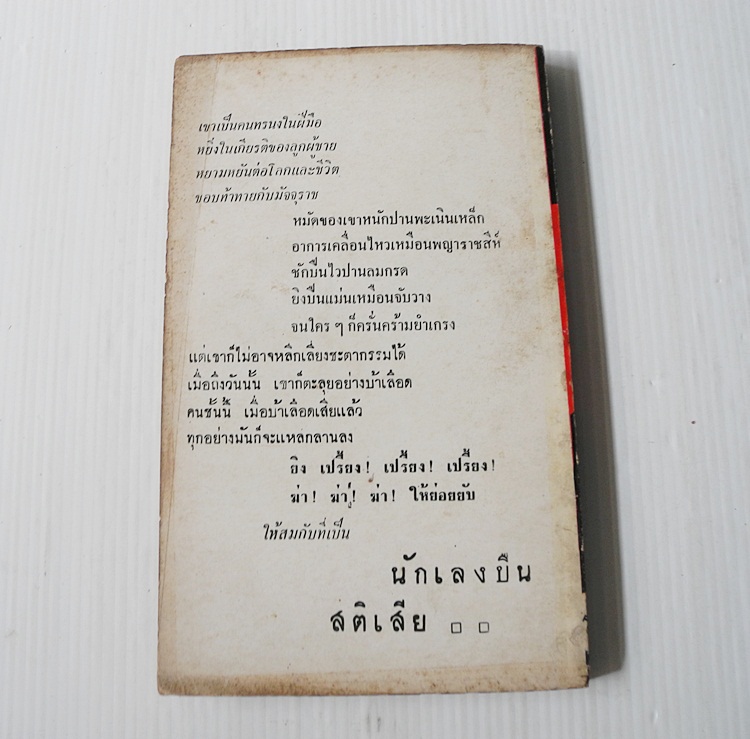 เขาเป็นคนทรนงในฝีมือ
หยิ่งในเกียรติของลูกผู้ชาย
หยามหยันต่อโลกและชีวิต
ชอบท้าทายกับมัจจุราช
หมัดของเขาหนักปานพะเนินเหล็ก
อาการเคลื่อนไหวเหมือนพญาราชสีห์
ชักปืนไวปานลมกรด
ยิงปืนแม่นเหมือนจับวาง
จนใคร ๆ ก็ครั่นคร้ามยำเกรง
แต่เขาก็ไม่อาจหลีกเลี่ยงชะตากรรมได้
เมื่อถึงวันนั้น เขาก็ตะลุยอย่างบ้าเลือด
คนชั้นนี้ เมื่อบ้าเลือดเสียแล้ว
ทุกอย่างมันก็จะแหลกลานลง
ยิง เปรี้ยง! เปรี้ยง! เปรี้ยง!
ฆ่า! ฆ่า! ฆ่า! ให้ย่อยยับ
ให้สมกับที่เป็น
นักเลงปืน
สติเสีย □ □